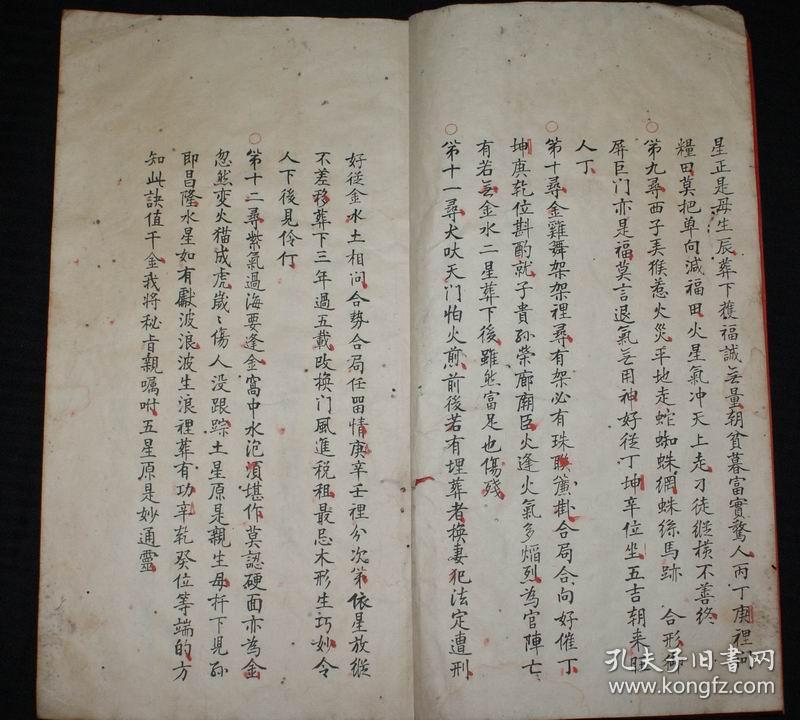 星正是母生辰葬下獲福誠无量朝貧暮富實驚人丙丁庚裡
糧田莫把单向減福田火星氣冲天上走刁徒縱横不善终
第九尋西子美猴惹火災平地走蛇蜘蛛網蛛絲馬跡 合形
屏巨门亦是福莫言退氣无用神好從丁坤辛位坐五吉朝来
人丁
○第十尋金雞舞架架裡尋有架必有珠聯簾掛合局合向好催丁
坤庚乾位斟酌就子貴孙荣廊廟臣火逢火氣多熖烈為官陣亡
有若无金水二星葬下後雖然富足也傷殘
○第十一尋犬吠天门怕火煎前後若有埋葬者换妻犯法定遭刑
好從金水土相问合势合局任留情庚辛壬裡分次第依星放縱
不差移葬下三年過五載改换门風進税租最忌木形生巧妙令
人下後見伶仃
○第十二尋紫氣過海要逢金窩中水泡湏堪作莫認硬面亦為金
忽然变火猫成虎歲〻傷人没跟踪土星原是親生母扦下児孙
即昌隆水星如有獻波浪波生浪裡葬有功辛乾癸位等端的方
知此訣值千金我將秘肯親囑咐五星原是妙通靈
孔夫子旧書网
www.kongfz.com